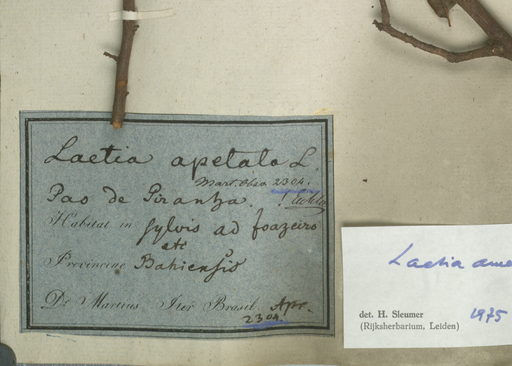 Laetia apetala L
Mart. Obs. 2304.
Pao de Piranha.
Habitat in sylvis ad Joazeiro
etc
Provinciae Bahiensis
Dr Martius Iter Brasil. Apr.
2304.
Laetia ame
det. H. Sleumer 1975
(Rijksherbarium, Leiden)